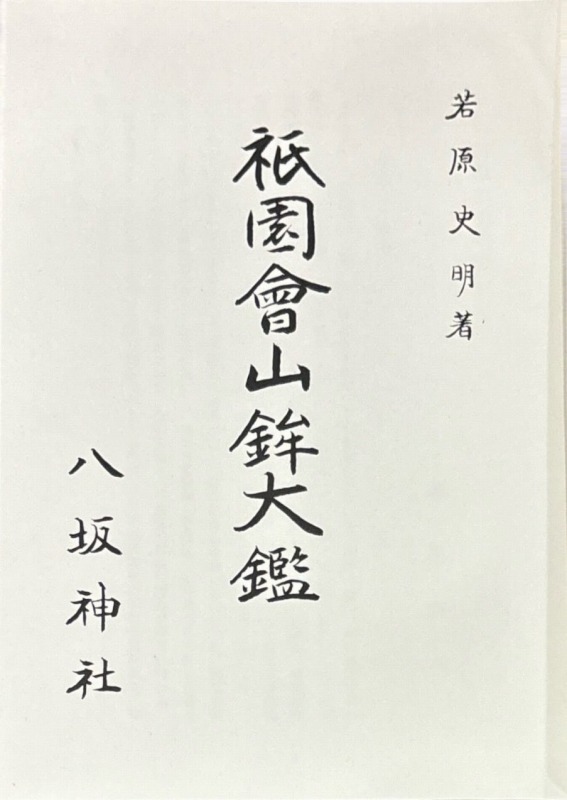 若原史明著
祇園會山鉾大鑑
八坂神社